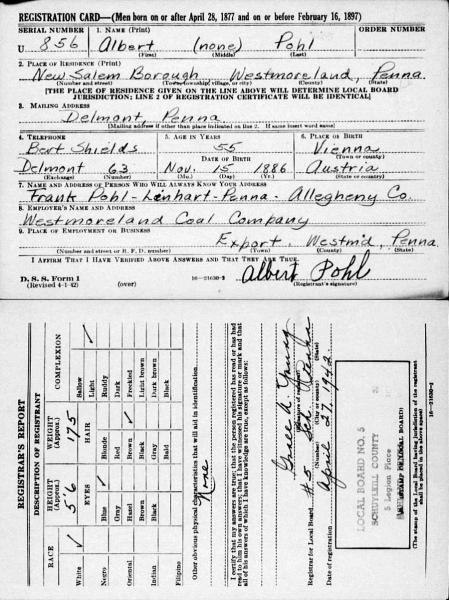 REGISTRATION CARD—(Men born on or after April 28, 1877 and on or before February 16, 1897)
SERIAL NUMBER 1. NAME (Print) ORDER NUMBER
U 856 Albert (none) Pohl
(First) (Middle) (Last)
2. PLACE OF RESIDENCE (Print)
New Salem Borough Westmoreland, Penna.
(Number and street) (Town, township, village, or city) (County) (State)
[THE PLACE OF RESIDENCE GIVEN ON THE LINE ABOVE WILL DETERMINE LOCAL BOARD
JURISDICTION; LINE 2 OF REGISTRATION CERTIFICATE WILL BE IDENTICAL]
3. MAILING ADDRESS
Delmont, Penna.
[Mailing address if other than place indicated on line 2. If same insert word same]
4. TELEPHONE 5. AGE IN YEARS 6. PLACE OF BIRTH
Bert Shields 55 Vienna
DATE OF BIRTH (Town or county)
Delmont 63 Nov. 15 1886 Austria
(Exchange) (Number) (Mo.) (Day) (Yr.) (State or country)
7. NAME AND ADDRESS OF PERSON WHO WILL ALWAYS KNOW YOUR ADDRESS
Frank Pohl - Lenhart - Penna - Allegheny Co.
8. EMPLOYER'S NAME AND ADDRESS
Westmoreland Coal Company
9. PLACE OF EMPLOYMENT OR BUSINESS
Export, Westm'd, Penna.
(Number and street or R. F. D. number) (Town) (County) (State)
I AFFIRM THAT I HAVE VERIFIED ABOVE ANSWERS AND THAT THEY ARE TRUE.
Albert Pohl
D. S. S. Form 1
(Revised 4-1-42) (over) 16—21630-2 (Registrant's signature)
REGISTRAR'S REPORT
DESCRIPTION OF REGISTRANT
RACE HEIGHT (Approx.) WEIGHT (Approx.) COMPLEXION
5'6 175
EYES HAIR
White Sallow
Negro Blue Blonde Light
Oriental Gray Red Ruddy
Indian Hazel Brown Dark
Filipino Brown Black Freckled
Black Gray Light brown
Bald Dark brown
Black
Other obvious physical characteristics that will aid in identification
None
I certify that my answers are true; that the person registered has read or has had
read to him his own answers; that I have witnessed his signature or mark and that
all of his answers of which I have knowledge are true, except as follows:
Grace A.
(Signature of registrar)
Registrar for Local Board #5
(Number) (City or county) (State)
Date of registration April 27, 1942
LOCAL BOARD NO. 5
SCHUYLKILL COUNTY
5 Legion Place
(STAMP OF LOCAL BOARD)
(The stamp of the Local Board having jurisdiction of the registrant
shall be placed in the above space)
16—21630-2